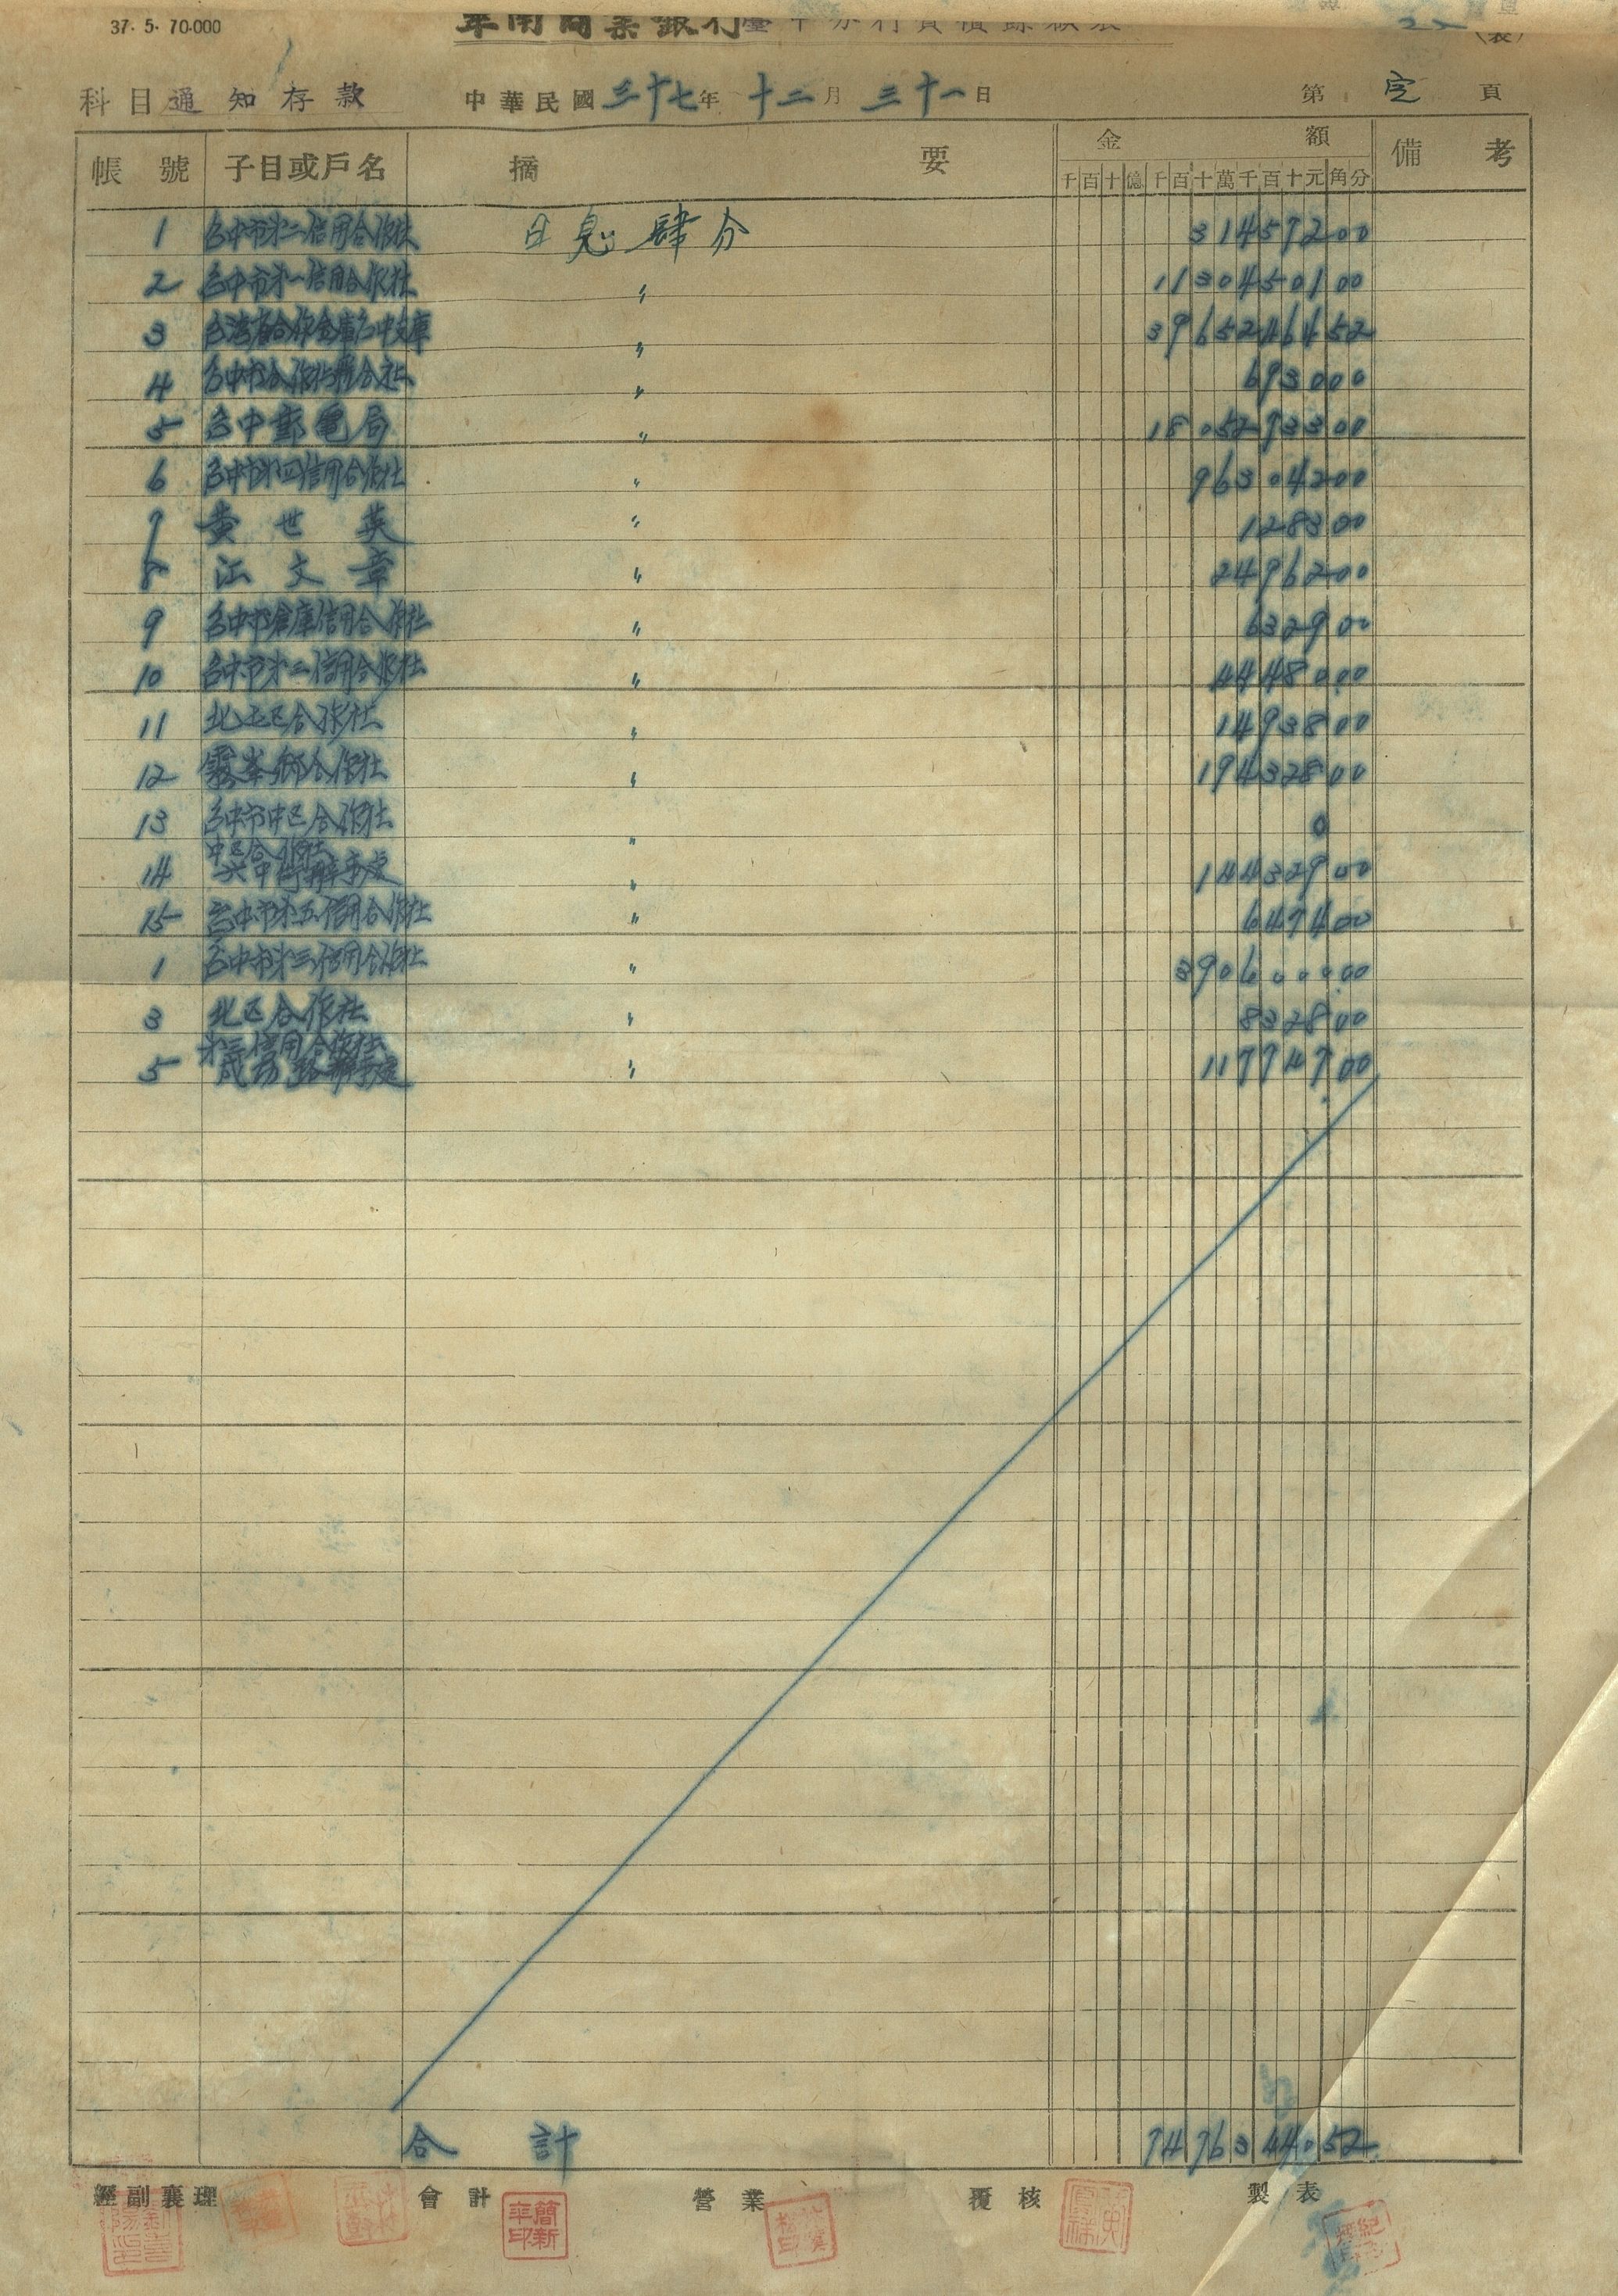 37. 5. 70.000
華南商業銀行臺中分行資積餘額表
(表)
科目通知存款 中華民國三十七年十二月三十一日 第 頁
帳號 子目或戶名 摘要 金額 備考
千百十億千百十萬千百十元角分
1 台中市第二信用合作社 日息肆分 31457200
2 台中市第一信用合作社 〃 1130450100
3 台湾省合作金庫台中支庫 〃 3965246452
4 台中市合作社聯合社 〃 693000
5 台中郵電局 〃 1805293300
6 台中市第四信用合作社 〃 96304200
7 黄世英 〃 128300
8 江文章 〃 2496200
9 台中市倉庫信用合作社 〃 632900
10 台中市第二信用合作社 〃 4448000
11 北屯区合作社 〃 1493800
12 霧峯鄉合作社 〃 19432800
13 台中市中区合作社 〃 0
14 中区合作社 辦事處 〃 14432900
15 台中市第五信用合作社 〃 647400
1 台中市第三信用合作社 〃 390600000
3 北区合作社 〃 832800
5 第三信用合作社 辦事處 〃 11774700
合計 7476344052
經副襄理 會計 營業 覆核 製表
簡新平印